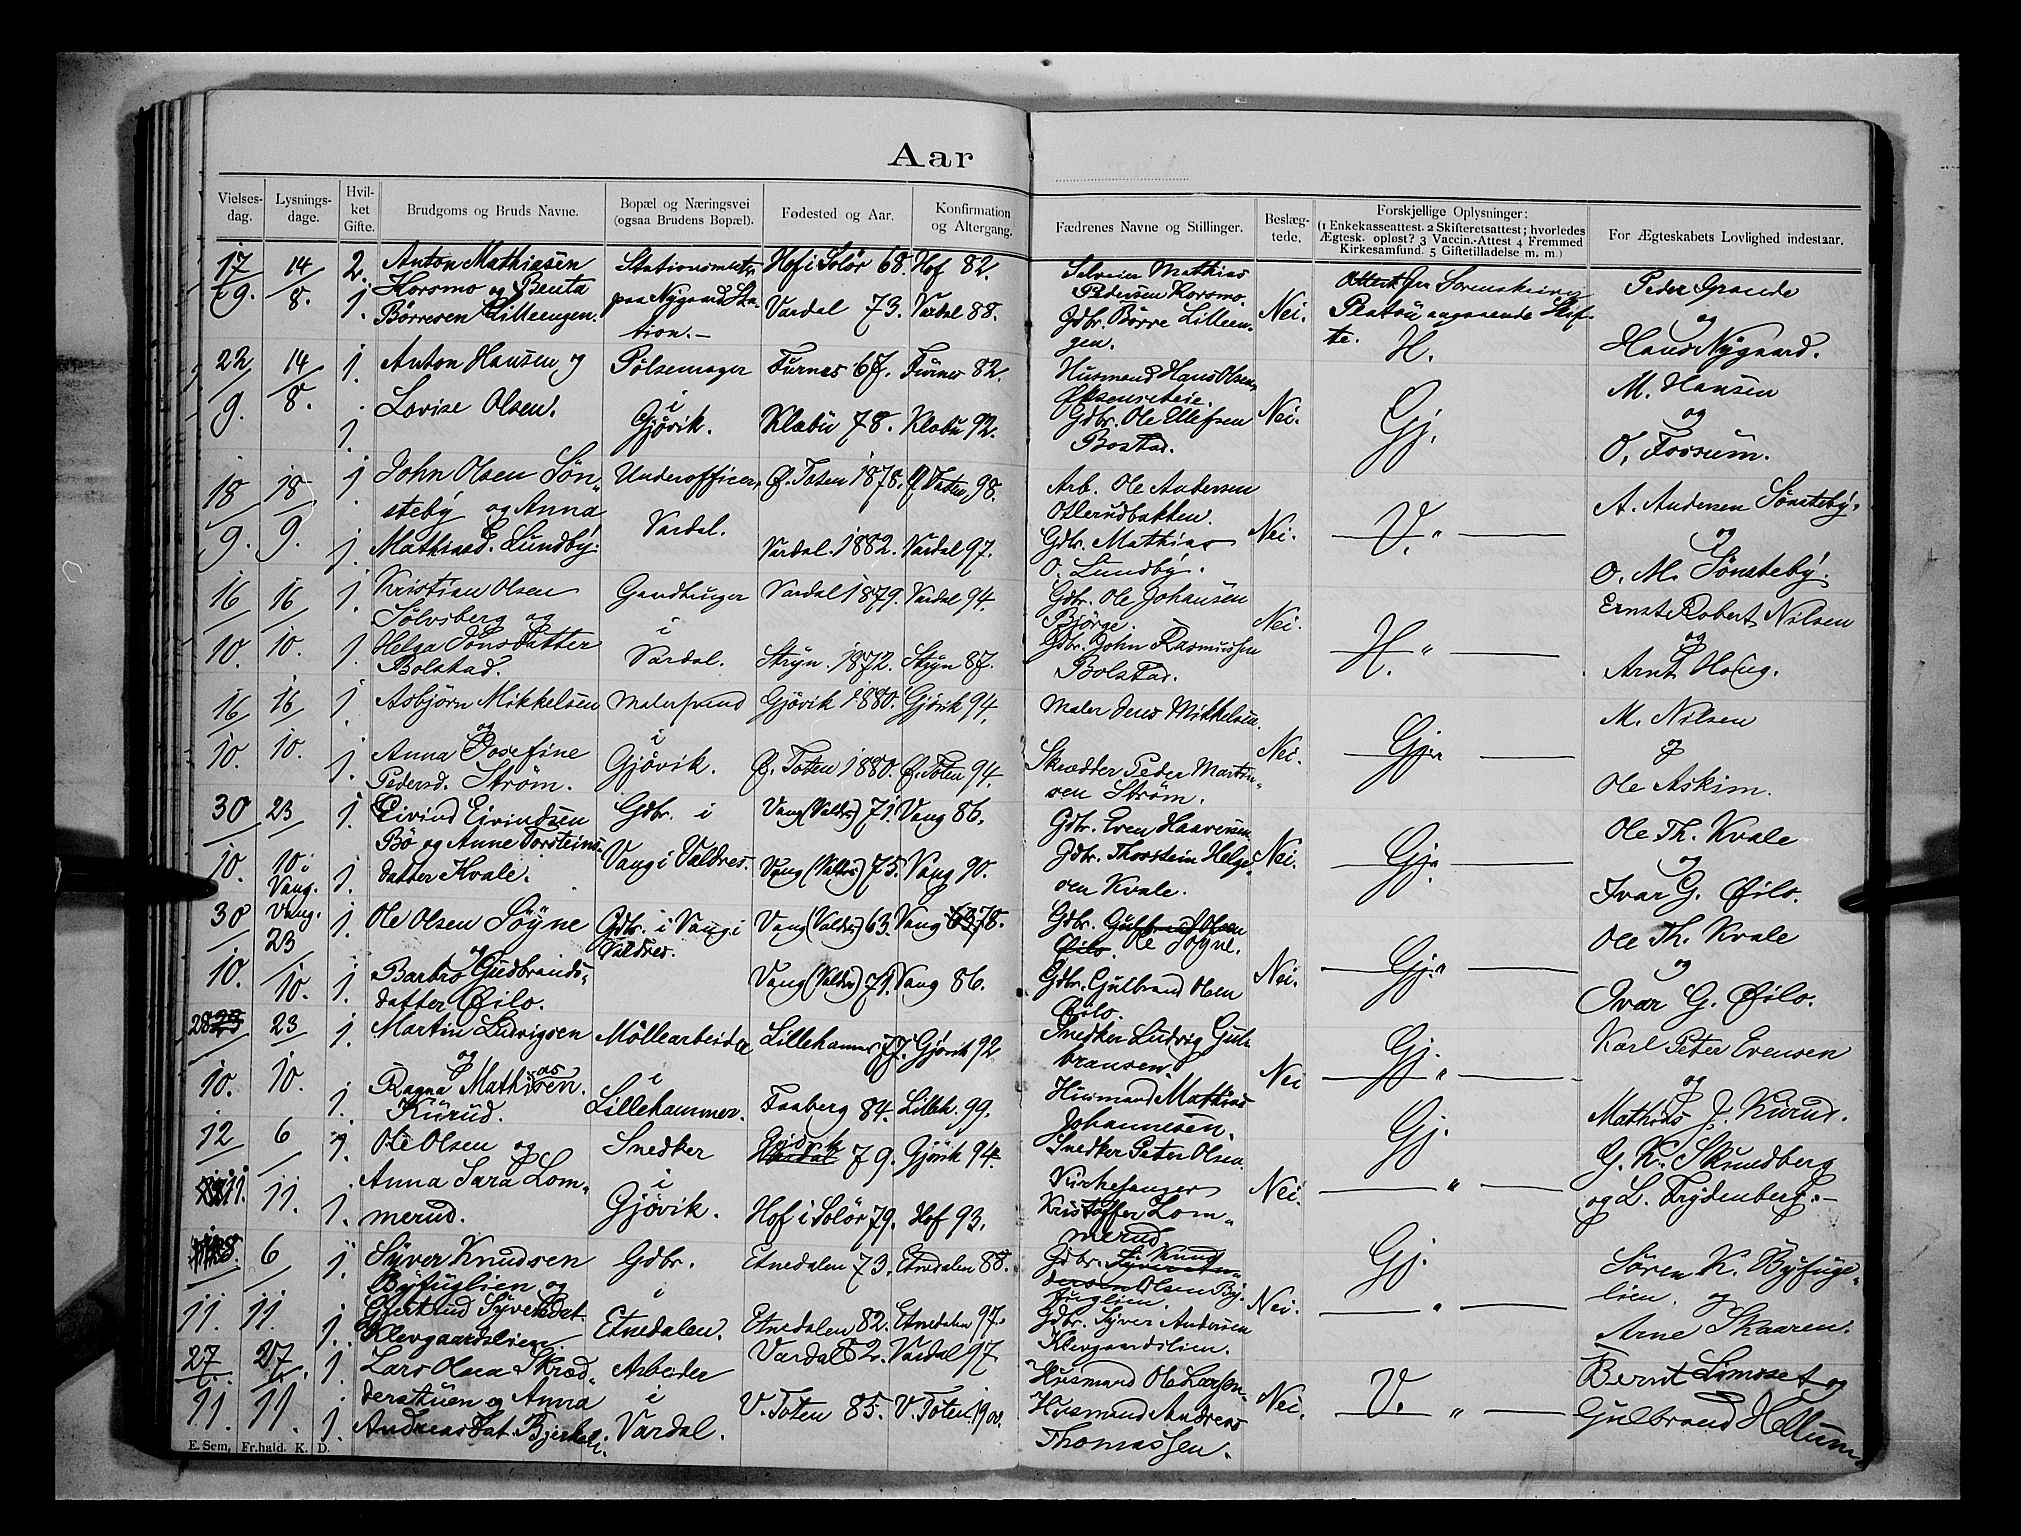 Aar
Vielsesdag. Lysningsdage. Hvilket Gifte. Brudgoms og Bruds Navne. Bopæl og Næringsvei (ogsaa Brudens Bopæl). Fødested og Aar. Konfirmation og Altergang. Fædrenes Navne og Stillinger. Beslægtede. Forskjellige Oplysninger: (1 Enkekasseattest. 2 Skifteretsattest; hvorledes Ægtesk. opløst? 3 Vaccin.-Attest 4 Fremmed Kirkesamfund. 5 Giftetilladelse m. m.) For Ægteskabets Lovlighed indestaar.
17 14 2. Anton Mathiasen Stationsmester Hof i Solør 68. Hof 82. Selveier Mathias Attest fra Sorenskriver Peder Grande
9. 8. 1. Korsmo og Benta paa Nygaard Sta- Vardal 73. Vardal 88. Pedersen Korsmo. Nei. Platou angaaende Skif- og
Børresen Lilleengen. tion.- Gdbr. Børre Lilleen- te. H. Hans Nygaard.
gen.
22 14 1. Anton Hansen og Pølsemager Furnes 67. Furnes 82. Husmand Hans Olsen M. Hansen
9. 8. i og
1. Lovise Olsen. Gjøvik. Klæbu 78. Klæbu 92. Gdbr. Ole Ellefsen Nei. Gj. O. Fossum.
Bostad.
18 18 1 John Olsen Søn- Underofficer, Ø. Toten 1878. Ø. Toten 98. Arb. Ole Andersen A. Andersen Sønsteby.
steby og Anna Vardal. Otlerudbakken. Nei. V. " og
9. 9. 1 Mathiasd. Lundby. Vardal. 1882. Vardal 97. Gdbr. Mathias O. M. Sønsteby.
O. Lundby.
16 16 1. Kristian Olsen Vardal 1879. Vardal 94. Gdbr. Ole Johansen Ernst Robert Nilsen
Sølvsberg og i Bjørge. Nei. H. " og
10. 10. 1. Helga Jonsdatter Vardal. Stryn. 1872. Stryn 87. Gdbr. John Rasmussen Arnt Haug.
Bolstad. Bolstad.
16 16 1 Asbjørn Mikkelsen Malersvend Gjøvik 1880. Gjøvik 94. Maler Jens Mikkelsen. M. Nilsen
og i Nei. Gj. " og
10. 10. 1. Anna Josefine Gjøvik. Ø. Toten 1880. Ø. Toten 94. Skrædder Peder Martin- Ole Askim.
Pedersd. Strøm. sen Strøm.
30 23 1. Eivind Eivindsen Gdbr. i Vang (Valdrs) 71. Vang 86. Gdbr. Even Haavensen Ole Th. Kvale
Bø og Anne Torsteins- Vang i Valdres. Nei. Gj. " og
10. 10 i 1. datter Kvale. Vang (Valdrs) 75. Vang 90. Gdbr. Thorstein Helge- Ivar G. Øilo.
Vang. sen Kvale.
30 Vang. 1. Ole Olsen Søyne Gdbr. i Vang i Vang (Valdrs) 63. Vang 78. Gdbr. Gulbrand Olsen Ole Th. Kvale
23 og Valdres. Øilo. Ole Søyne. og
10. 10. 1. Barbro Gudbrands- Vang (Valdrs) 71. Vang 86. Gdbr. Gulbrand Olsen Nei. Gj. " Ivar G. Øilo.
datter Øilo. Øilo.
28 23 23 1. Martin Ludvigsen Møllearbeider Lillehammer 77. Gjøvik 92. Snedker Ludvig Gul- Karl Peter Evensen
og i bransen. Nei Gj. " og
10. 10. 1. Ragna Mathiasen. Lillehammer. Faaberg 84. Lilleh. 99. Husmand Mathias Mathias J. Kurud.
Kurud. Johannesen.
12 6 1. Ole Olsen og Snedker Gjøvik Vardal 79. Gjøvik 94. Snedker Peter Olsen G. K. Skundberg
11. 11. 1. Anna Sara Lom- i Hof i Solør 79. Hof 93. Kirkesanger Nei. Gj. " og L. Frydenberg.-
merud. Gjøvik. Kristoffer Lom-
merud.
6 1. Syver Knudsen Gdbr. Etnedalen 73. Etnedalen 88. Gdbr. Knud Søren K. Byfuge-
Byfuglien og i Olsen By- Nei. Gj. " lien. og
11. 11. 1. Gjertrud Syversdat. Etnedalen. Etnedalen 82. Etnedalen 97. fuglien. Gdbr. Syver Andersen Arne Skaaren.
Klevgaardslien. Klevgaardslien.
27. 27. 1. Lars Olsen Skræd- Arbeider Vardal 82. Vardal 97. Husmand Ole Larsen. Bernt Limoset og
derstuen og Anna i Nei. V. "
11. 11. 1. Andreasdat. Bjerkeli. Vardal. V. Toten 85. V. Toten 1900. Husmand Andreas Gulbrand Hellum
Thomassen.
E. Sem, Fr.hald. K. D.